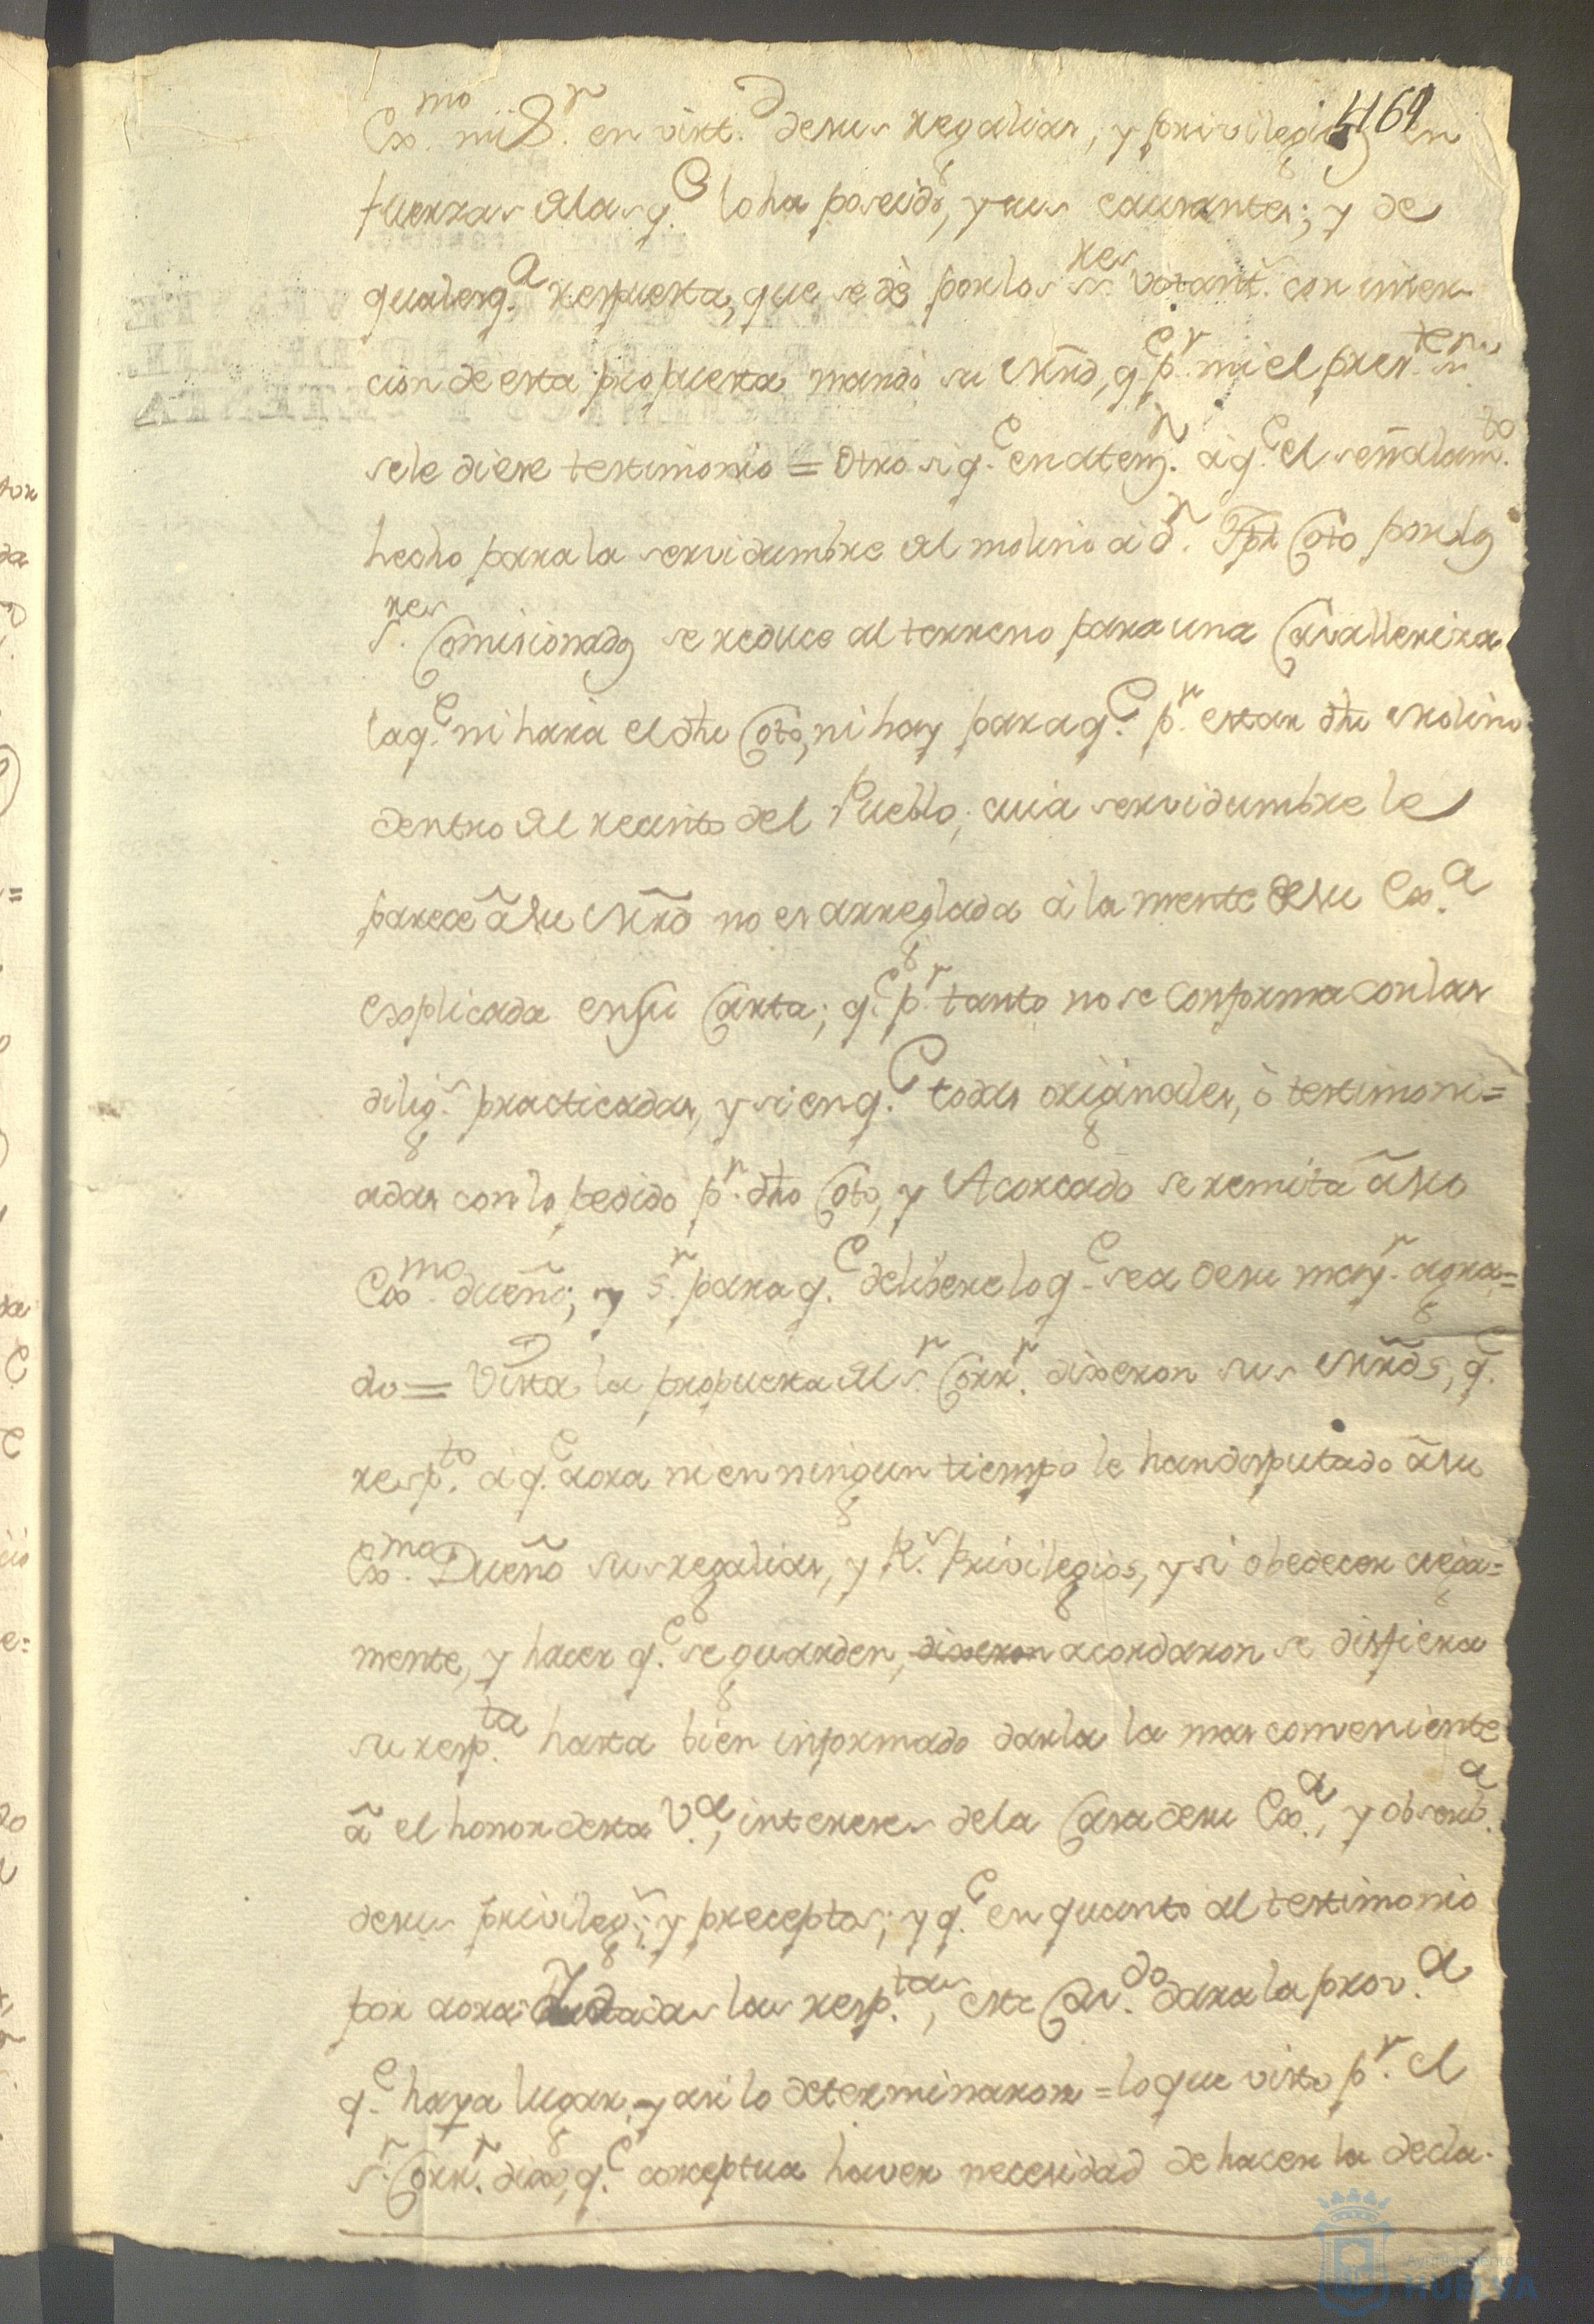 461
Exmo. mi Sr. en virt. de sus regalias, y privilegios en
fuerzas de las q.e lo ha poseido, y sus causantes; y de
qualesq.a respuesta, que se dè por los ss.res votant.s con inser-
cion de esta propuesta mandò su Mrd, q.e p.r mi el pres.te ss.no
se le diese testimonio = Otro si q.e en atenz.n à q.e el señalam.to
hecho para la servidumbre del molino à d.n Coto por los
s.res Comisionados se reduce al terreno para una Cavalleriza
la q.e ni haria el dho Coto, ni hay para q.e p.r estar dho Molino
dentro del recinto del Pueblo; cuia servidumbre le
parece à su Mrd no es arreglada à la mente de su Ex.a
explicada en su Carta; q.e p.r tanto no se conforma con las
dilig.s practicadas, y si en q.e todas originales, ò testimoni=
adas con lo pedido p.r dho Coto, y Acordado se remita à su
Exmo. dueño; y s.r para q.e delibere lo q.e sea de su may.r agra=
do = Vista la propuesta del s.r Corr.r dixeron sus Mrds, q.e
resp.to à q.e aora ni en ningun tiempo le han disputado à su
Exmo. Dueño sus regalias, y R.s Privilegios, y si obedecer ciega=
mente, y hacer q.e se guarden, dixeron acordaron se difiera
su resp.ta hasta bien informado darla la mas conveniente
à el honor desta V.a, intereses de la Casa de su Ex.a, y observ.a
de sus privileg.s, y preceptos; y q.e en quanto al testimonio
por aora dadas las resp.tas, este Cav.do dara la prov.a
q.e haya lugar, y asi lo determinaron = lo que visto p.r el
s.r Corr.r dixo, q.e conceptua haver necesidad de hacer la decla-
Ayuntamiento de
HUELVA